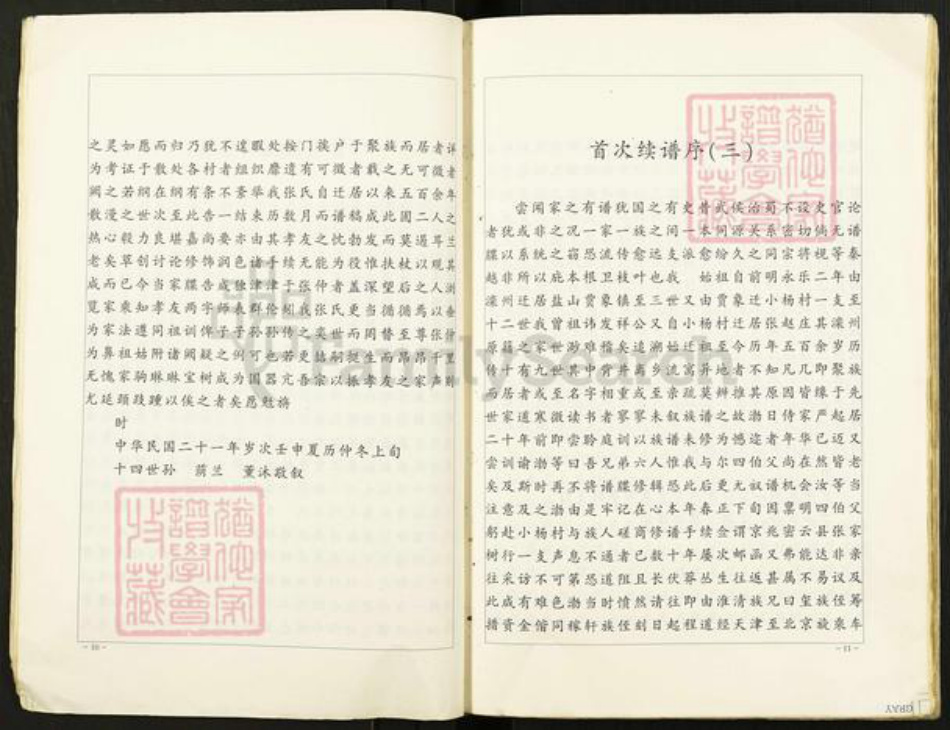 之灵如愿而归乃犹不遑暇处按门挨户于聚族而居者详
为考证于散处各村者组织靡遗有可微者载之无可微者
阙之若纲在纲有条不紊华我张氏自迁居以来五百余年
散漫之世次至此告一结束历数月而谱稿成此固二人之
热心毅力良堪嘉尚要亦由其孝友之忱勃发而莫遏耳兰
老矣草创讨论修饰润色诸手续无能为役惟扶杖以观其
成而已今当家牒告成独津津于张仲者盖深望后之人浏
览家乘知孝友两字师表群伦绍我张氏更当循循焉以垂
为家法遵同祖训俾子子孙孙传之奕世而罔替至尊张仲
为鼻祖姑附诸阙疑之例可也若更协嗣挺生而昂昂千里
无愧家驹琳琳宝树成为国器亢吾宗以振孝友之家声则
尤延颈跂踵以俟之者矣愿勉旃
时
中华民国二十一年岁次壬申夏历仲冬上旬
十四世孙 荫兰 薰沐敬叙
-10-
首次续谱序(三)
尝闻家之有谱犹国之有史昔武侯治蜀不设史官论
者犹或非之况一家一族之间一本同源关系密切倘无谱
牒以系统之窃思流传愈远支派愈纷久之同宗将视等秦
越非所以庇本根卫枝叶也我 始祖自前明永乐二年由
滦州迁居盐山贾象镇至三世又由贾象迁小杨村一支至
十二世我曾祖讳发祥公又自小杨村迁居张赵庄其滦州
原籍之家世渺难稽矣追溯始迁祖至今历年五百余岁历
传十有九世其中背井离乡流寓异地者不知凡几即聚族
而居者或至名字相重或至亲疏莫辨推其原因皆缘于先
世家道寒微读书者寥寥未叙族谱之故渤日侍家严起居
二十年前即尝聆庭训以族谱未修为憾迄者年华已迈又
尝训谕渤等曰吾兄弟六人惟我与尔四伯父尚在然皆老
矣及斯时再不将谱牒修辑恐此后更无叙谱机会汝等当
注意及之渤由是牢记在心本年春正下旬因禀明四伯父
躬赴小杨村与族人磋商修谱手续佥谓京兆密云县张家
树行一支声息不通者已数十年屡次邮函又弗能达非亲
往采访不可第恐道阻且长伏莽丛生往返甚属不易议及
此咸有难色渤当时愤然请往即由淮清族兄曰玺族侄筹
措资金偕同稼轩族侄刻日起程道经天津至北京旋乘车
-11-
FamilySearch
GRAY